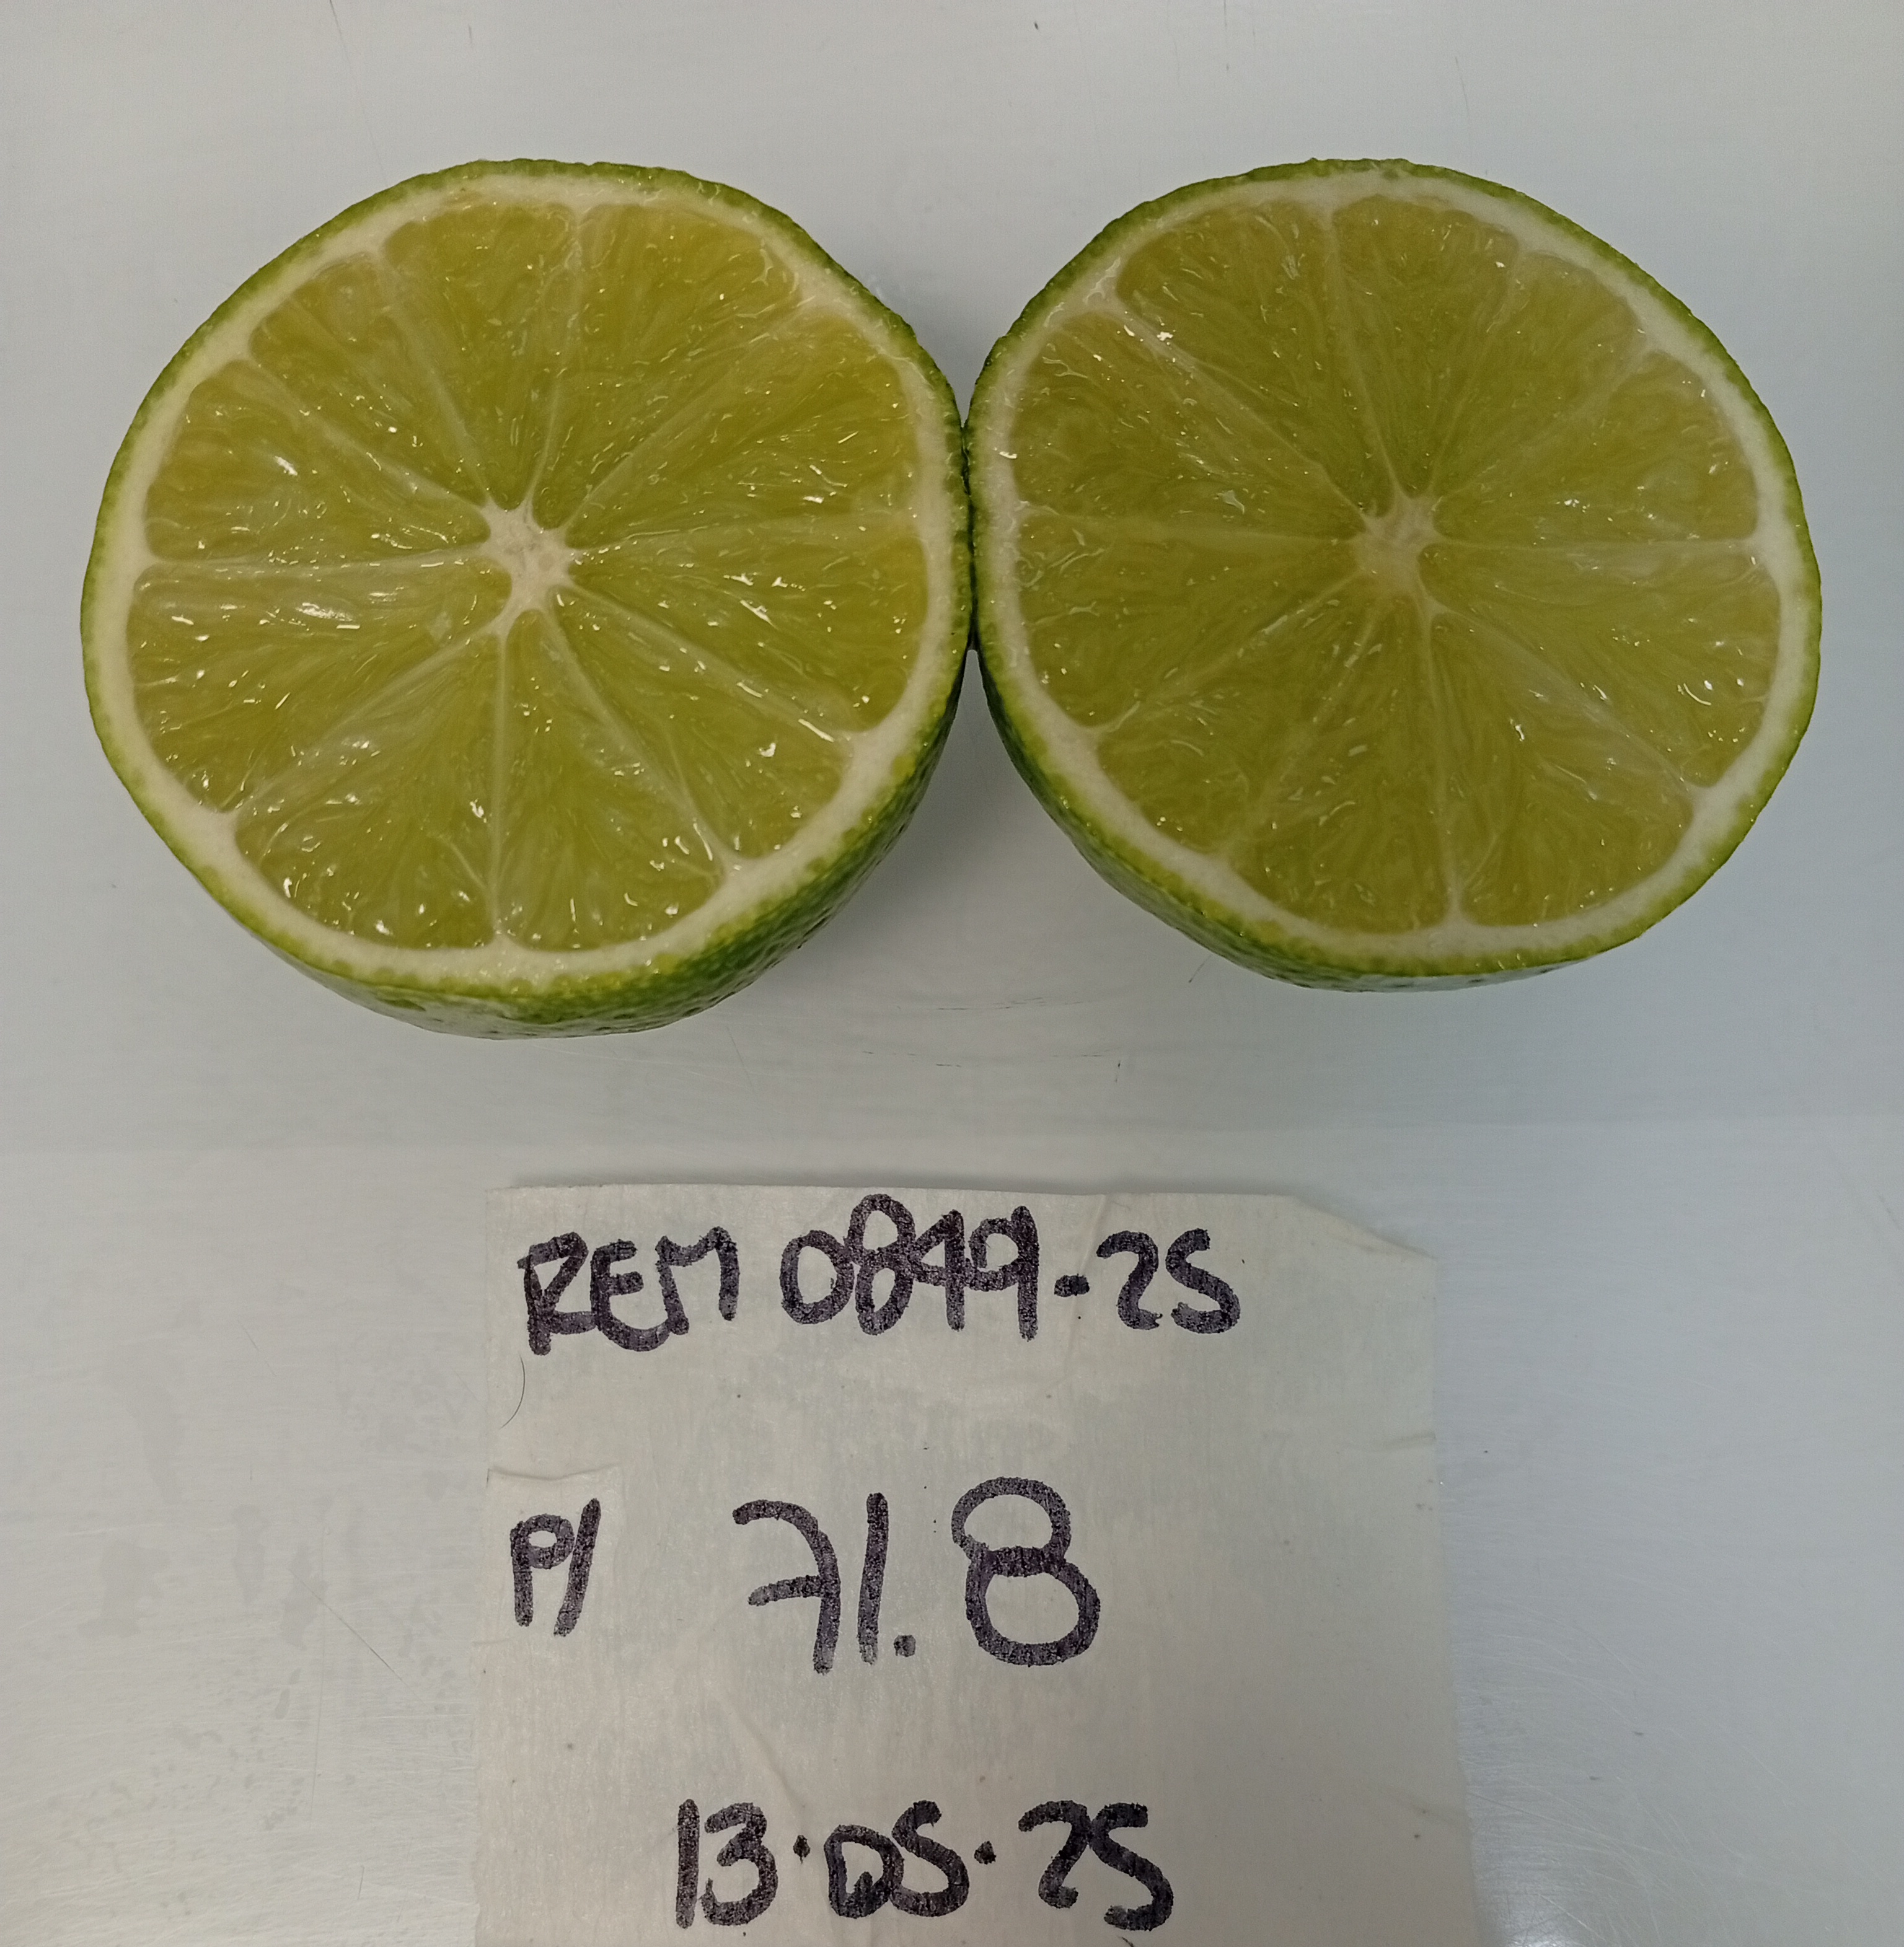 REM 0849-25
P/ 71.8
13.05.25